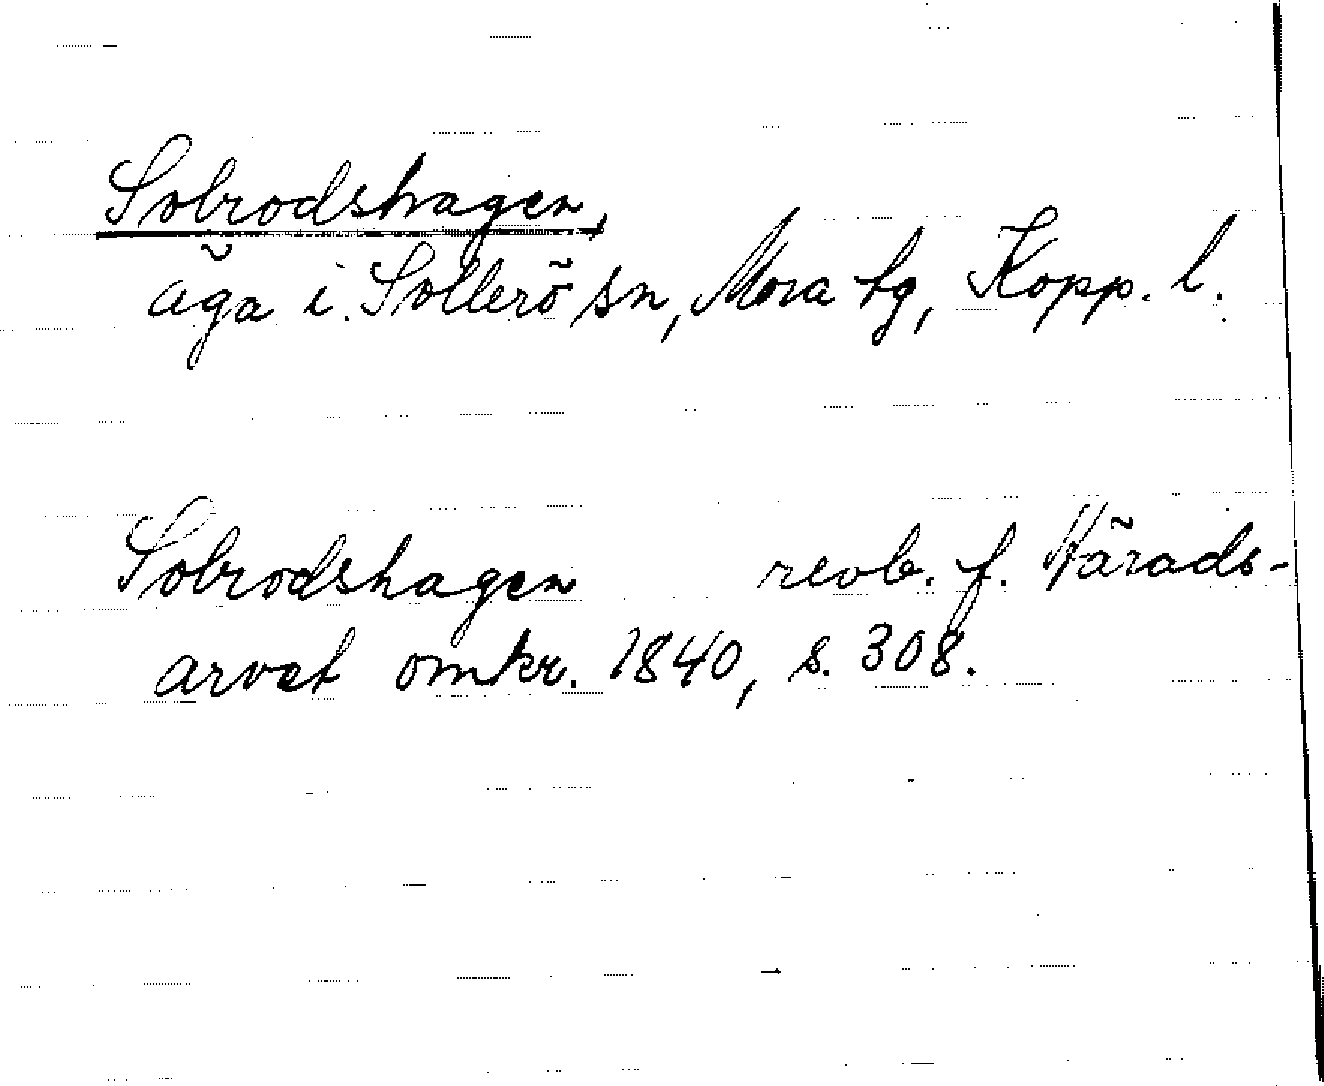 Solrodshagen,
äga i Sollerö sn, Mora tg, Kopp. l.
Solrodshagen revb. f. Härads-
arvet omkr. 1840, s. 308.